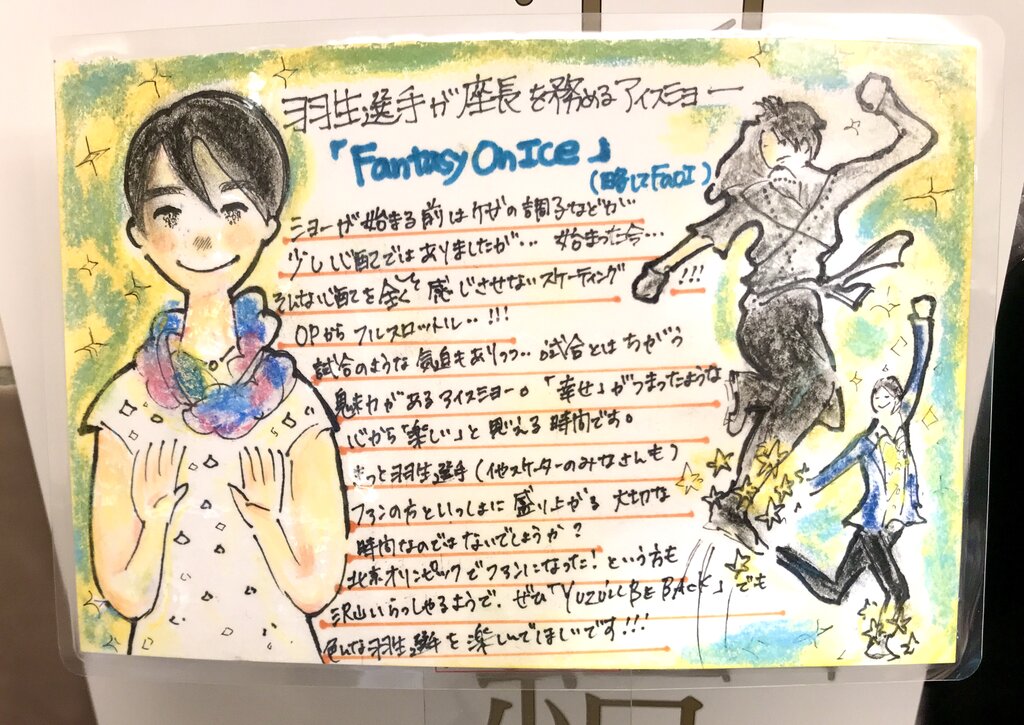 羽生選手が座長を務めるアイスショー
「Fantasy On Ice」
(略してFaOI)
ショーが始まる前はケガの調子などが…
少し心配ではありましたが… 始まった今…
そんな心配を全くもって感じさせないスケーティング!!!
OPからフルスロットル‥!!!
試合のような気迫もありつつ‥試合とはちがう
魅力があるアイスショー。「幸せ」がつまったような
心から「楽しい」と思える時間です。
きっと羽生選手(他スケーターのみなさんも)
ファンの方といっしょに盛り上がる 大切な
時間なのではないでしょうか?
北京オリンピックでファンになった!という方も
沢山いらっしゃるようで、ぜひ「YUZU'LL BE BACK」でも
色んな羽生選手を楽しんでほしいです!!!